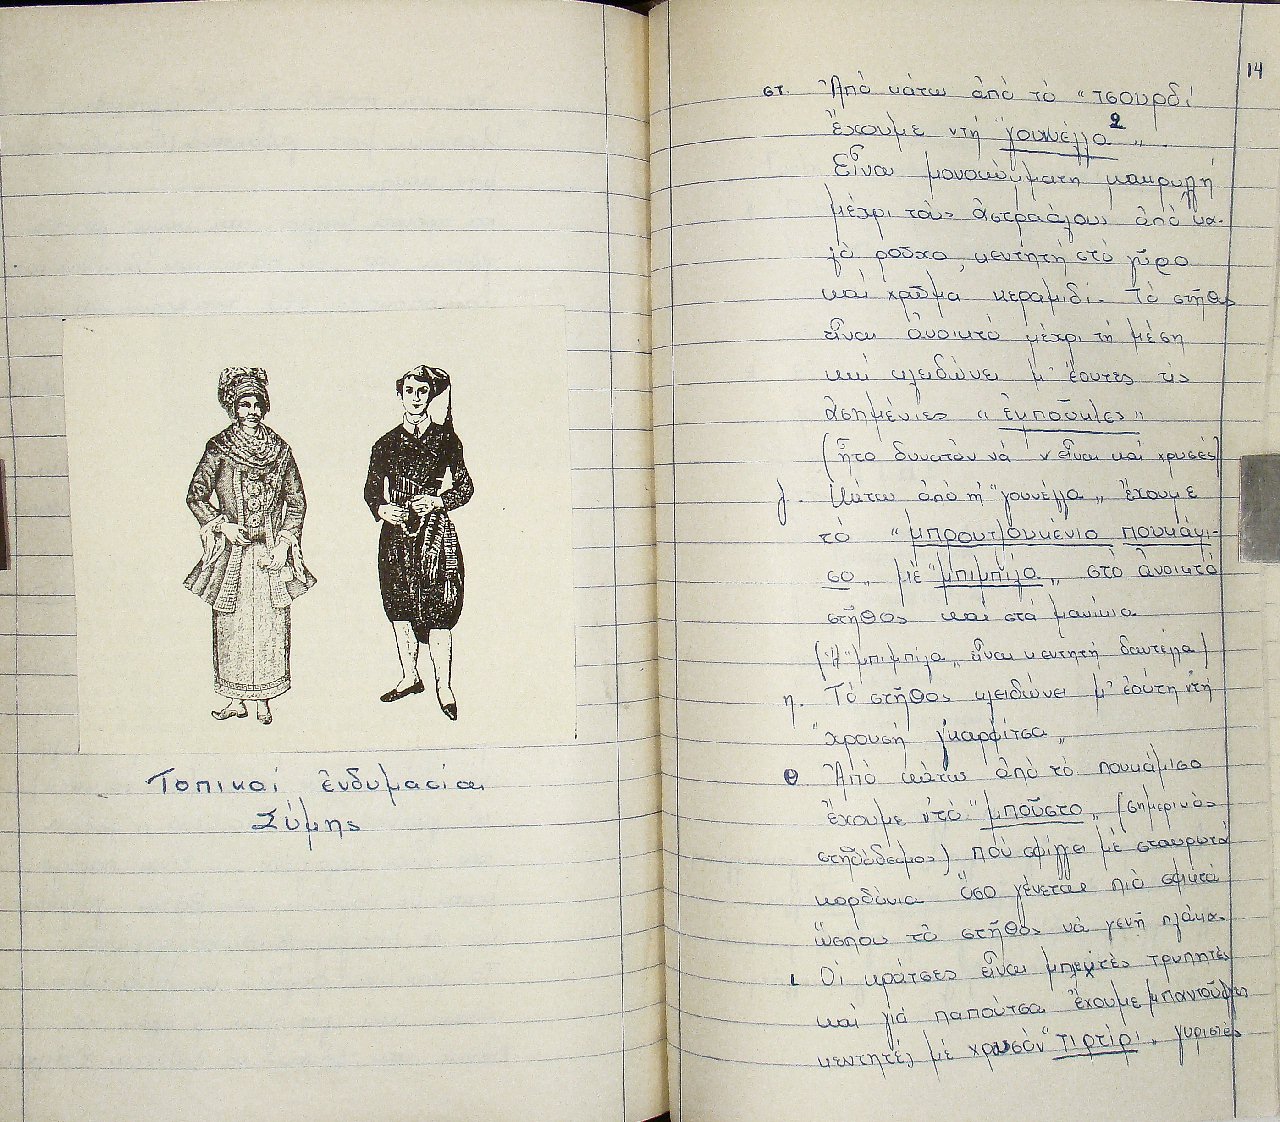 Τοπικαί ἐνδυμασίαι
Σύμης
14
στ. Ἀπό κάτω ἀπό τό "τσουρδί
ἔχουμε ντή "γουνέλλα 2 „ .
Εἶναι μονοκόμματη μακρυλή
μέχρι τούς ἀστραάλους ἀπό κα-
λό ροῦχο, κεντητή στό γῦρο
καί χρῶμα κεραμιδί. Τό στῆθος
εἶναι ἀνοικτό μέχρι τή μέση
καί κλειδώνει μ' ἐουτές τίς
ἀσημένιες "ἐκποῦκλες"
(ἦτο δυνατόν νά ν' εἶναι καί χρυσές)
ζ. Κάτω ἀπό τή "γουνέλλα„ ἔχουμε
τό "μπρουτζουκένιο πουκάμι-
σο„ μέ "μπιμπίλα„ στό ἀνοικτό
στῆθος καί στά μανίκια
(Ἡ "μπιμπίλα„ εἶναι κεντητή δαντέλλα)
η. Τό στῆθος κλειδώνει μ' ἐούτη ντή
"χρουσή γκαρφίτσα„
θ Ἀπό κάτω ἀπό τό πουκάμισο
ἔχουμε ντό "μποῦστο„ (σημερινός
στηθόδεσμος) πού σφίγγει μέ σταυρωτά
κορδόνια ὅσο γένεται πιό σφικτά
ὥσπου τό στῆθος νά γενῇ πλάκα.
ι Οἱ κράτσες εἶναι μπλεχτές τρυπητές
καί γιά παπούτσα ἔχουμε μπαντοῦφλες
κεντητές μέ χρυσόν "τιρτίρι„ γυριστές